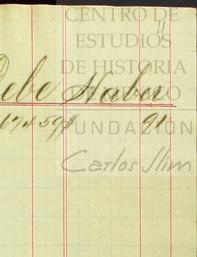 CENTRO DE
11
ESTUDIOS
DE HISTORIA
Debe Haber
FUNDACIÓN
91
Carlos Slim